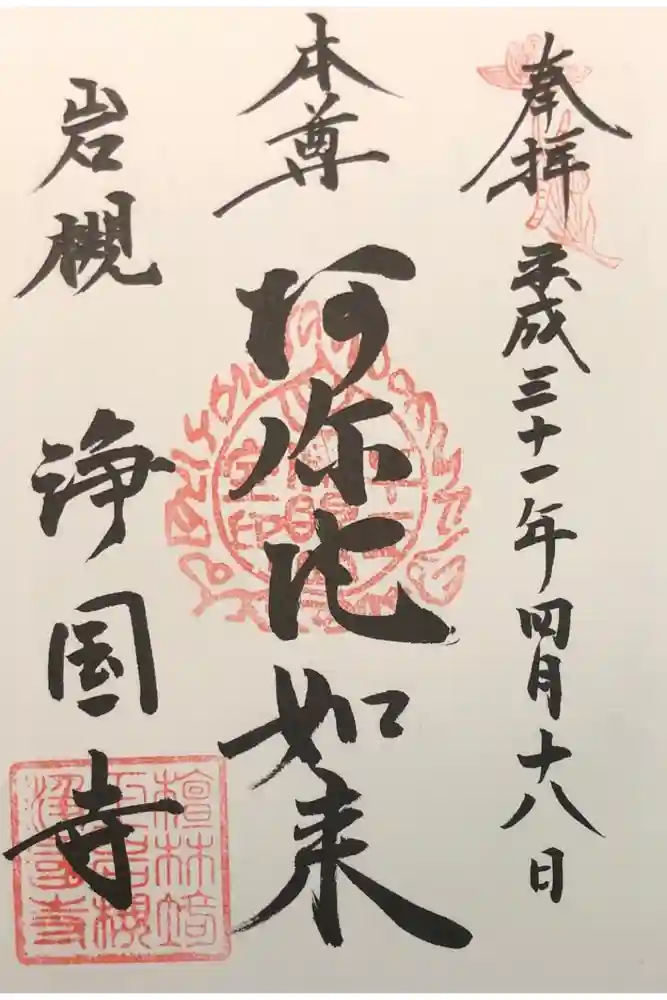 奉拝 平成三十一年四月十八日
本尊 阿弥陀如来
岩槻 浄国寺
檀林埼
玉岩槻
浄国寺